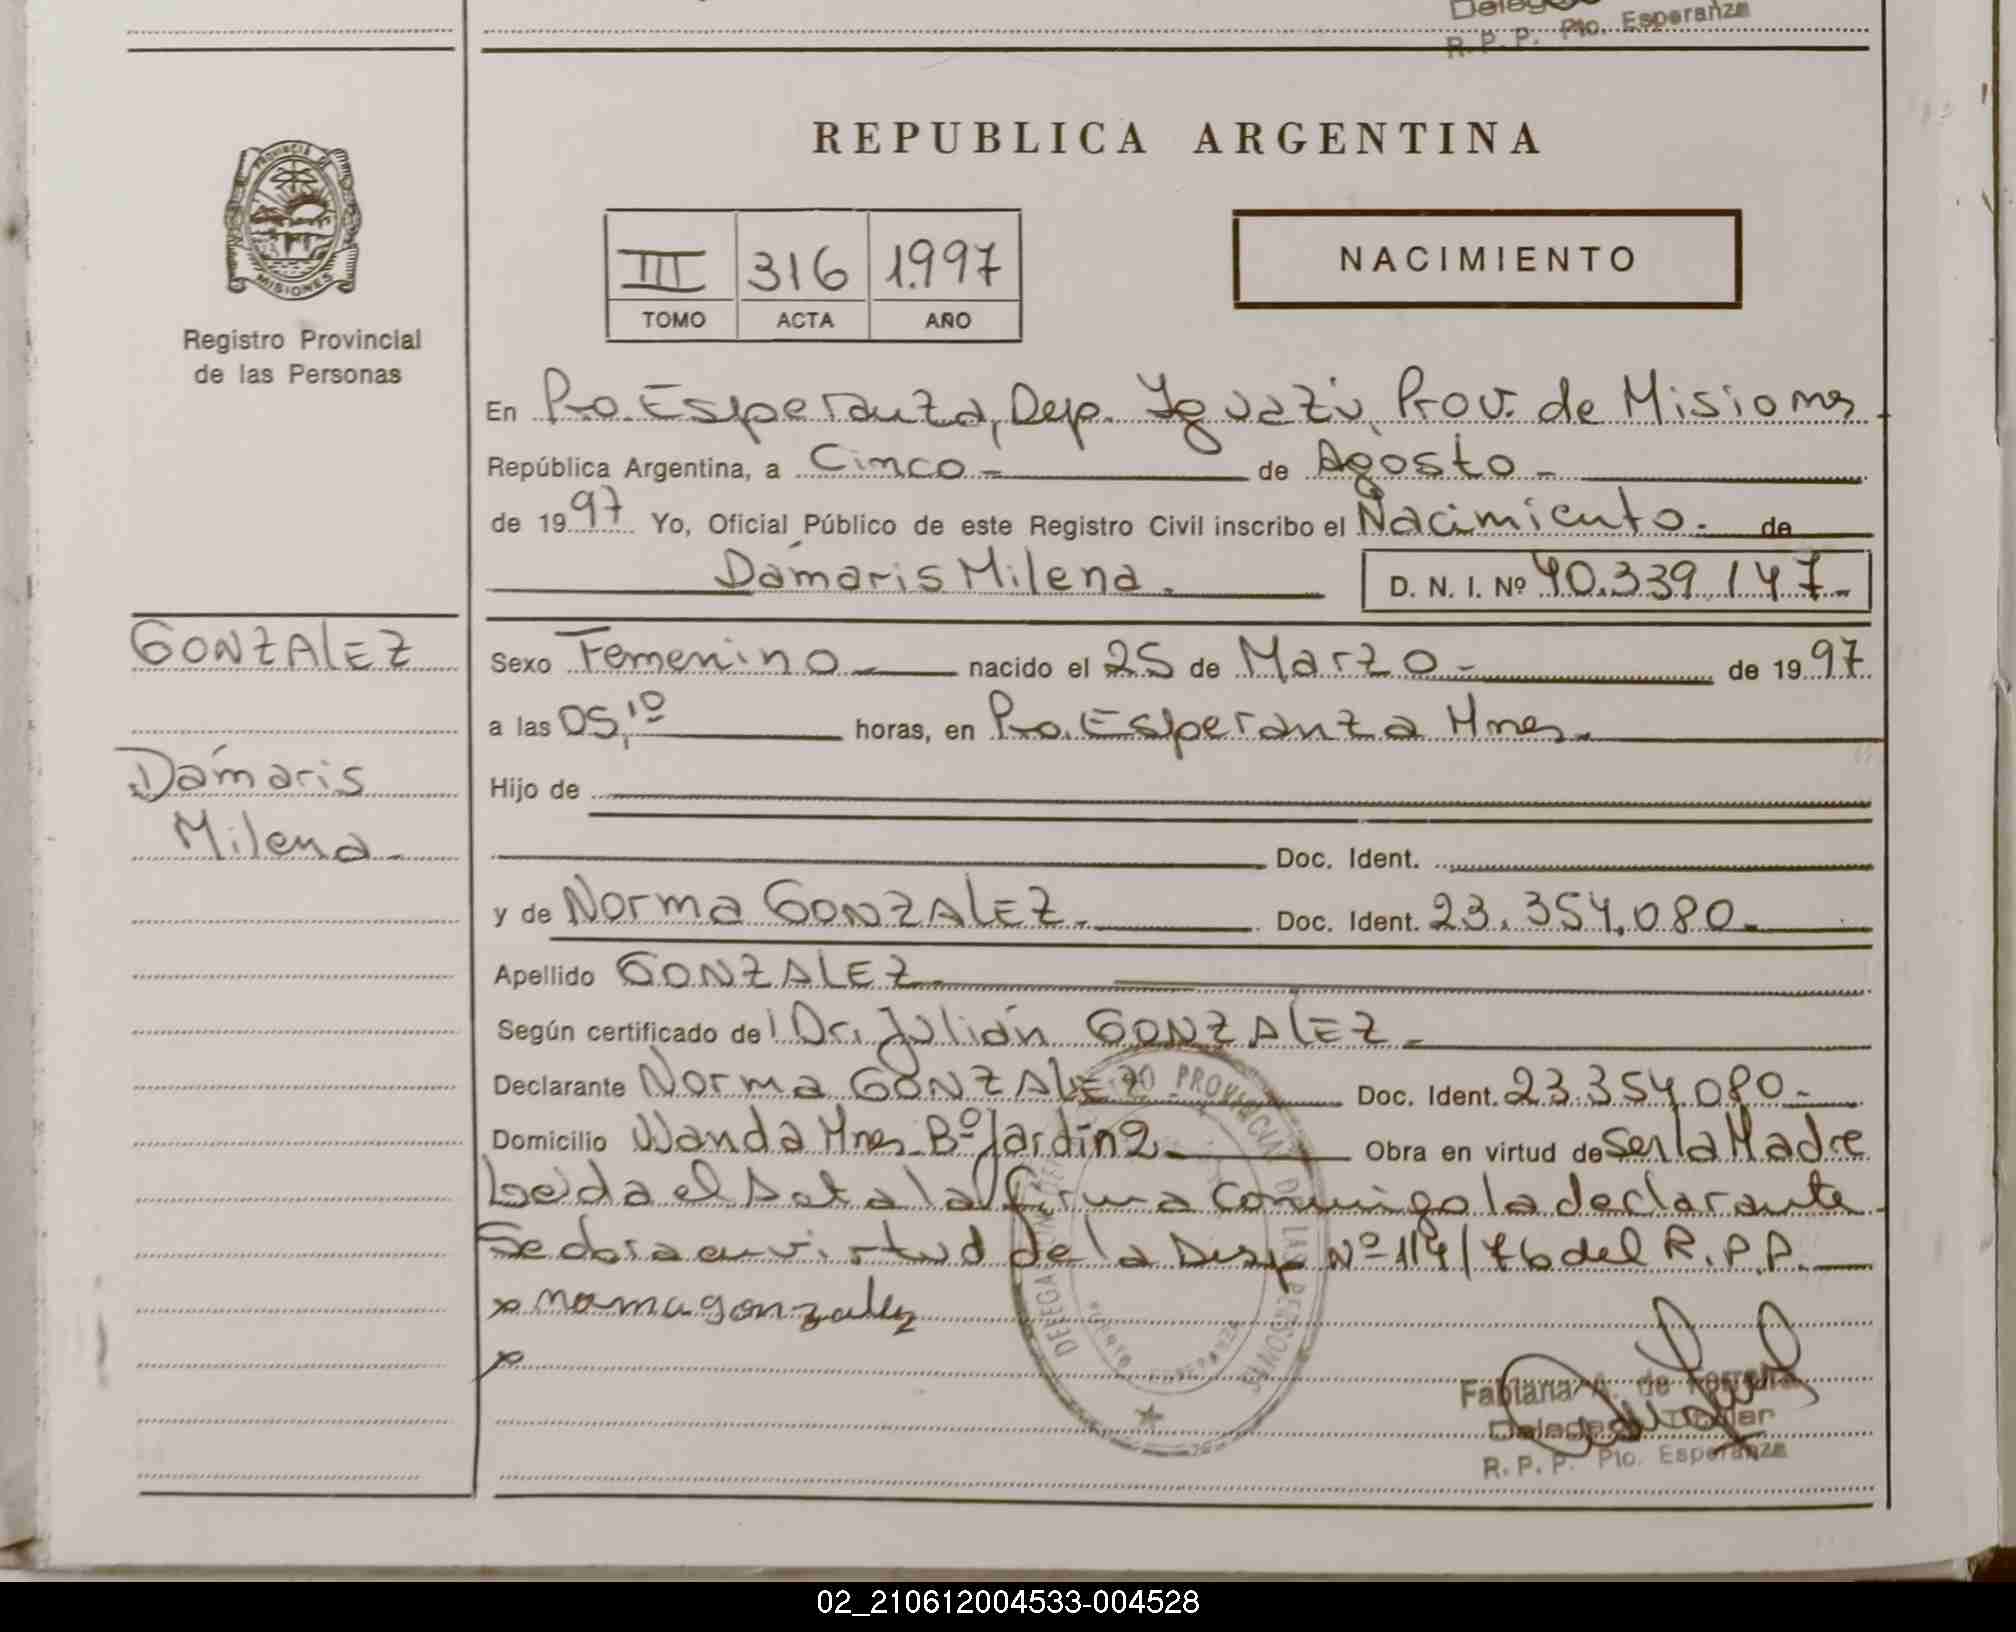 Delega
R. P. P. Pto. Esperanza
REPUBLICA ARGENTINA
PROVINCIA DE MISIONES
Registro Provincial
de las Personas
III 316 1.997
TOMO ACTA AÑO
NACIMIENTO
En Pto. Esperanza, Dep. Iguazú, Prov. de Misiones
República Argentina, a Cinco.- de Agosto.-
de 1997 Yo, Oficial Público de este Registro Civil inscribo el Nacimiento. de
Dámaris Milena. D. N. I. Nº 40.339.147.-
GONZALEZ
Dámaris
Milena.-
Sexo Femenino.- nacido el 25 de Marzo.- de 1997
a las 05,10 horas, en Pto. Esperanza Mnes.
Hijo de
Doc. Ident.
y de Norma GONZALEZ.- Doc. Ident. 23.354.080.-
Apellido GONZALEZ.-
Según certificado de Dr. Julián GONZALEZ.-
Declarante Norma GONZALEZ.- Doc. Ident. 23.354.080.-
Domicilio Wanda Mnes. Bº Jardín 2.- Obra en virtud de Ser la Madre
Leída el Acta la firma conmigo la declarante
Se labra en virtud de la Disp. Nº 114/76 del R.P.P.
x norma gonzalez
x
DELEGACION DEL REGISTRO PROVINCIAL DE LAS PERSONAS
PUERTO ESPERANZA
Fabiana A. de Ferreira
Delegada Titular
R. P. P. Pto. Esperanza
02_210612004533-004528